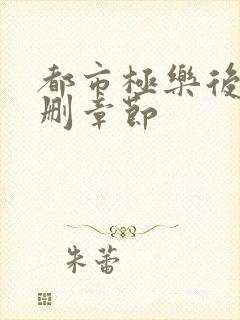 都市極樂後
刪章節
朱蕾